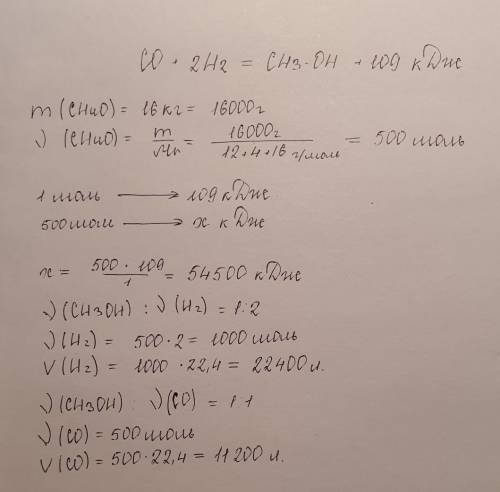 CO + 2H2 = CH3-OH + 109 кДж
m (CH4O) = 16 кг = 16000г
ν (CH4O) = m/Mr = 16000г/12+4+16 г/моль = 500 моль
1 моль ⟶ 109 кДж
500 моль ⟶ x кДж
x = 500 · 109/1 = 54500 кДж
ν (CH3OH) : ν (H2) = 1:2
ν (H2) = 500·2 = 1000 моль
V (H2) = 1000 ·22,4 = 22400 л.
ν (CH3OH) : ν (CO) = 1:1
ν (CO) = 500 моль
V (CO) = 500·22,4 = 11200 л.